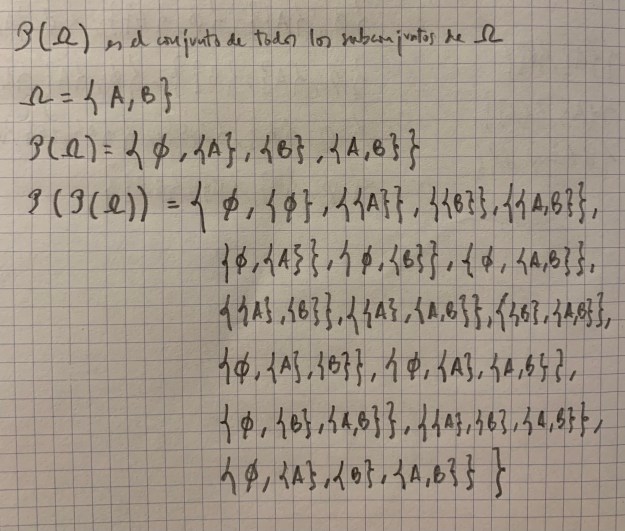 P(Ω) es el conjunto de todos los subconjuntos de Ω
Ω = { A, B }
P(Ω) = { ϕ, {A}, {B}, {A,B} }
P(P(Ω)) = { ϕ, {ϕ}, {{A}}, {{B}}, {{A,B}},
{ϕ,{A}}, {ϕ,{B}}, {ϕ, {A,B}},
{{A},{B}}, {{A}, {A,B}}, {{B}, {A,B}},
{ϕ,{A},{B}}, {ϕ,{A},{A,B}},
{ϕ,{B},{A,B}}, {{A},{B},{A,B}},
{ϕ,{A},{B},{A,B}} }